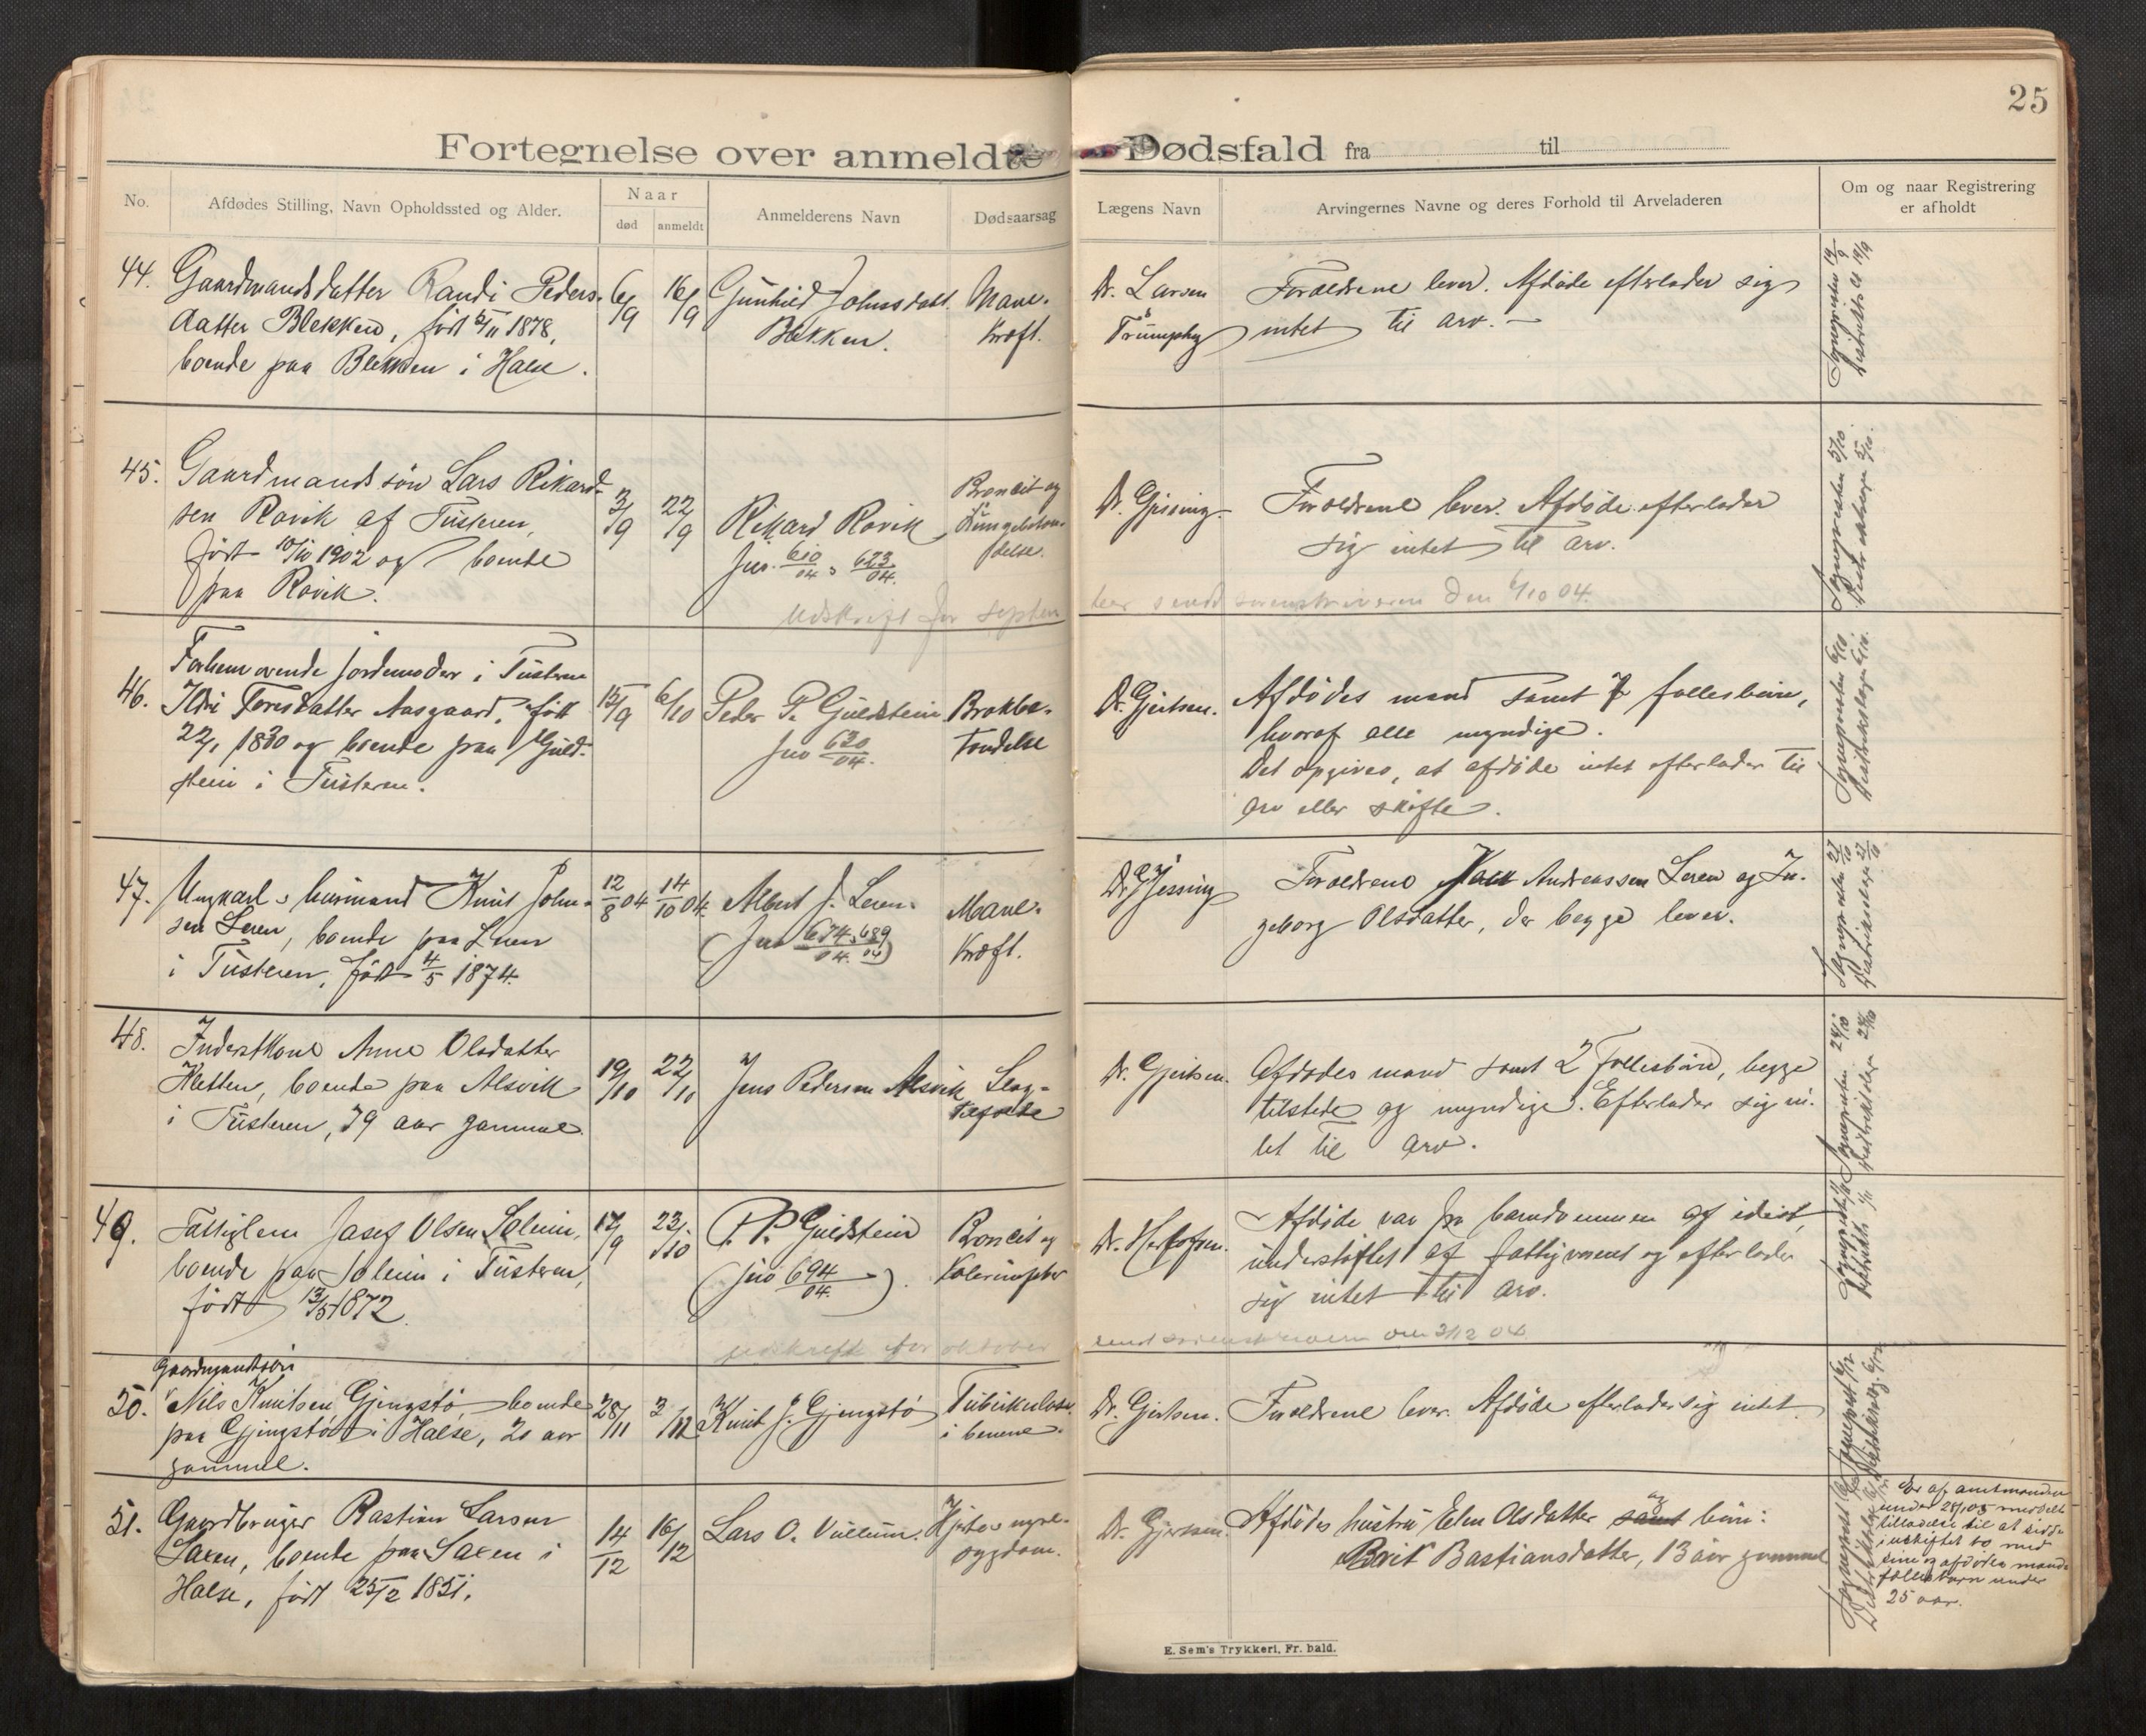 25
Fortegnelse over anmeldte Dødsfald fra til
No.
Afdødes Stilling, Navn Opholdssted og Alder.
Naar
død
anmeldt
Anmelderens Navn
Dødsaarsag
Lægens Navn
Arvingernes Navne og deres Forhold til Arveladeren
Om og naar Registrering
er afholdt
44.
Gaardmandsdatter Randi Peders-
datter Blekken, født 5/11 1878,
boende paa Blekken i Halse.
6/9
16/9
Gunhild Johnsdatt.
Blekken.
Mave-
kræft.
Dr. Larsen
Trumphy
Forældrene lever. Afdøde efterlader sig
intet til arv. —
Sognepresten 19/9
19/9
45.
Gaardmandssøn Lars Rikard-
sen Rovik af Tusteren,
født 10/10 1902 og boende
paa Rovik.
3/9
22/9
Rikard Rovik
Jno. 610/04, 623/04.
Broncit og
Lungebetæn-
delse.
Dr. Gjessing.
Forældrene lever. Afdøde efterlader
sig intet til arv.
Sognepresten 5/10.
5/10.
Udskrift for septbr
sendt sorenskriveren den 6/10 04.
46.
Forhenværende jordemoder i Tusteren
Ildri Toresdatter Aasgaard, født
22/1 1830 og boende paa Guld-
stein i Tusteren.
15/9
6/10
Peder P. Guldstein
Jno 630/04.
Brokbe-
tændelse
Dr. Gjertsen.
Afdødes mand samt 7 fællesbørn,
hvoraf alle myndige.
Det opgives, at afdøde intet efterlader til
arv eller skifte.
Sognepresten 6/10.
6/10.
47.
Ungkarl, husmand Knut John-
sen Leren, boende paa Leren
i Tusteren, født 4/5 1874.
12/8 04
14/10 04.
Albert J. Leren.
(Jno 674/04, 689/04)
Mave-
kræft.
Dr. Gjessing
Forældrene John Andreassen Leren og In-
geborg Olsdatter, der begge lever.
Sognepresten 27/10
27/10
48.
Inderstkone Anne Olsdatter
Kletten, boende paa Alsvik
i Tusteren, 79 aar gammel.
19/10
22/10
Jens Pedersen Alsvik
Slag-
tilfælde
Dr. Gjertsen.
Afdødes mand samt 2 fællesbørn, begge
tilstede og myndige. Efterlader sig in-
tet til arv.
Sognepresten 24/10
24/10
49.
Fattiglem Josef Olsen Soleim,
boende paa Soleim i Tusteren,
født 13/5 1872.
17/9
23/10
P. P. Guldstein
(Jno 694/04.)
Broncit og
Dr. Herlofsen.
Afdøde var fra barndommen af idiot,
understøttet af fattigvæsenet og efterlader
sig intet til arv.
Udskrift for oktober
sendt sorenskriveren den 3/12 04
50.
Gaardmandssøn
Nils Knutsen Gjengstø, boende
paa Gjengstø i Halse, 20 aar
gammel.
28/11
3/12
Knut J. Gjengstø
Tuberkulose
i benene.
Dr. Gjertsen.
Forældrene lever. Afdøde efterlader sig intet.
51.
Gaardbruger Bastian Larsen
Saxen, boende paa Saxen i
Halse, født 25/2 1851.
14/12
16/12
Lars O. Vullum.
Hjerte & nyre-
sygdom.
Dr. Gjertsen.
Afdødes hustru Elen Olsdatter samt og børn:
Brit Bastiansdatter, 13 aar gammel
Er af amtmanden
under 28/1 05 meddelt
tilladelse til at sidde
i uskiftet bo med
sine og afdøde mands
fællesbørn under
25 aar.
E. Sem's Trykkeri, Fr. hald.